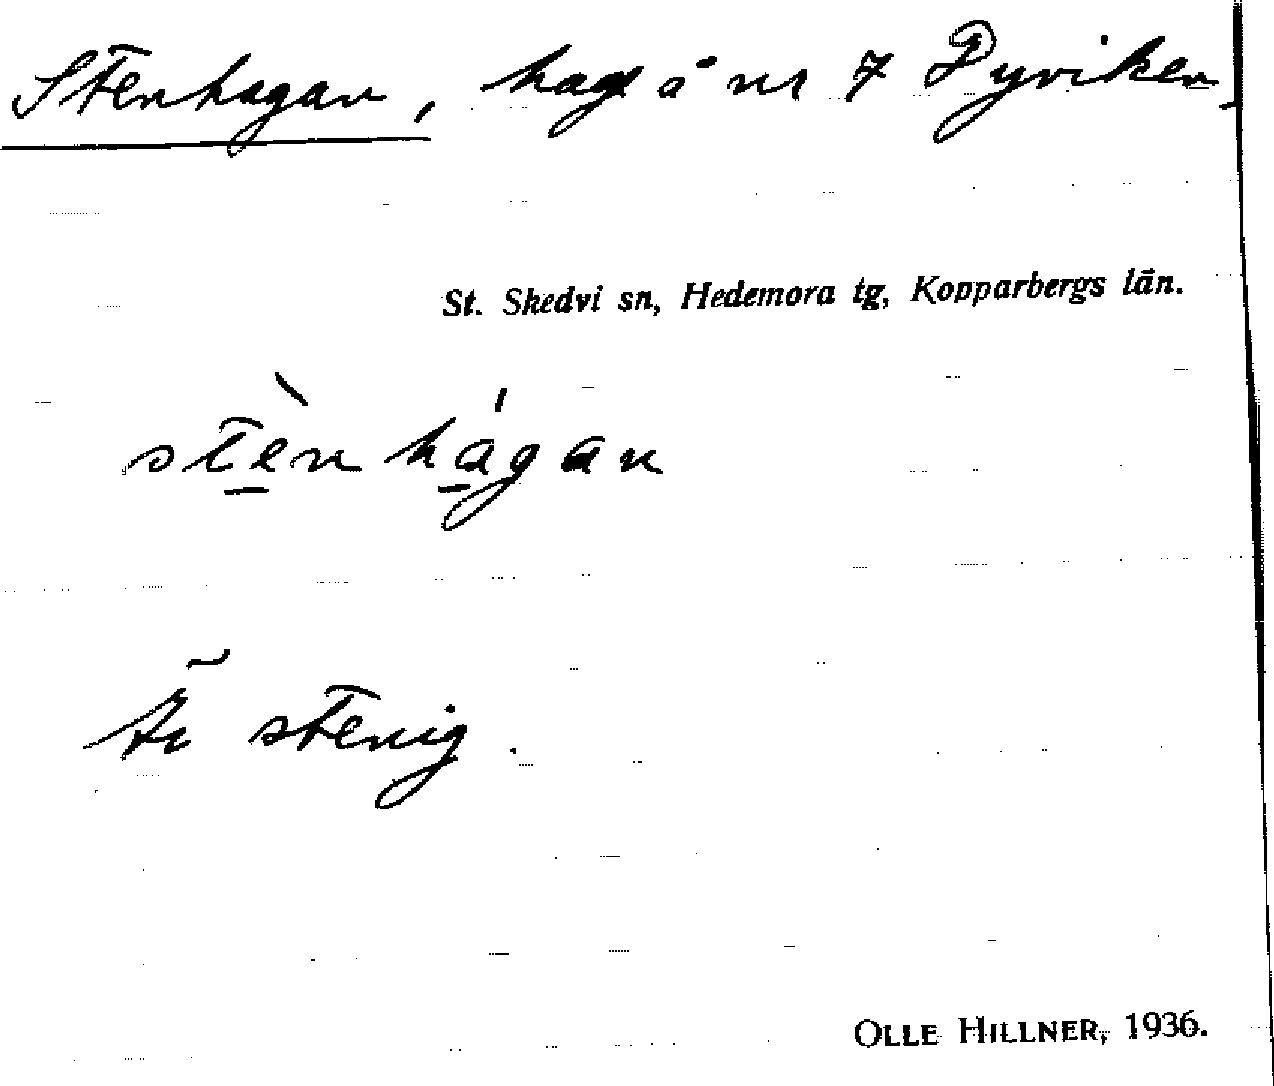 Stenhagan, hage å nr 7 Pyviken.
St. Skedvi sn, Hedemora tg, Kopparbergs län.
stènhágan
Är stenig.
OLLE HILLNER, 1936.